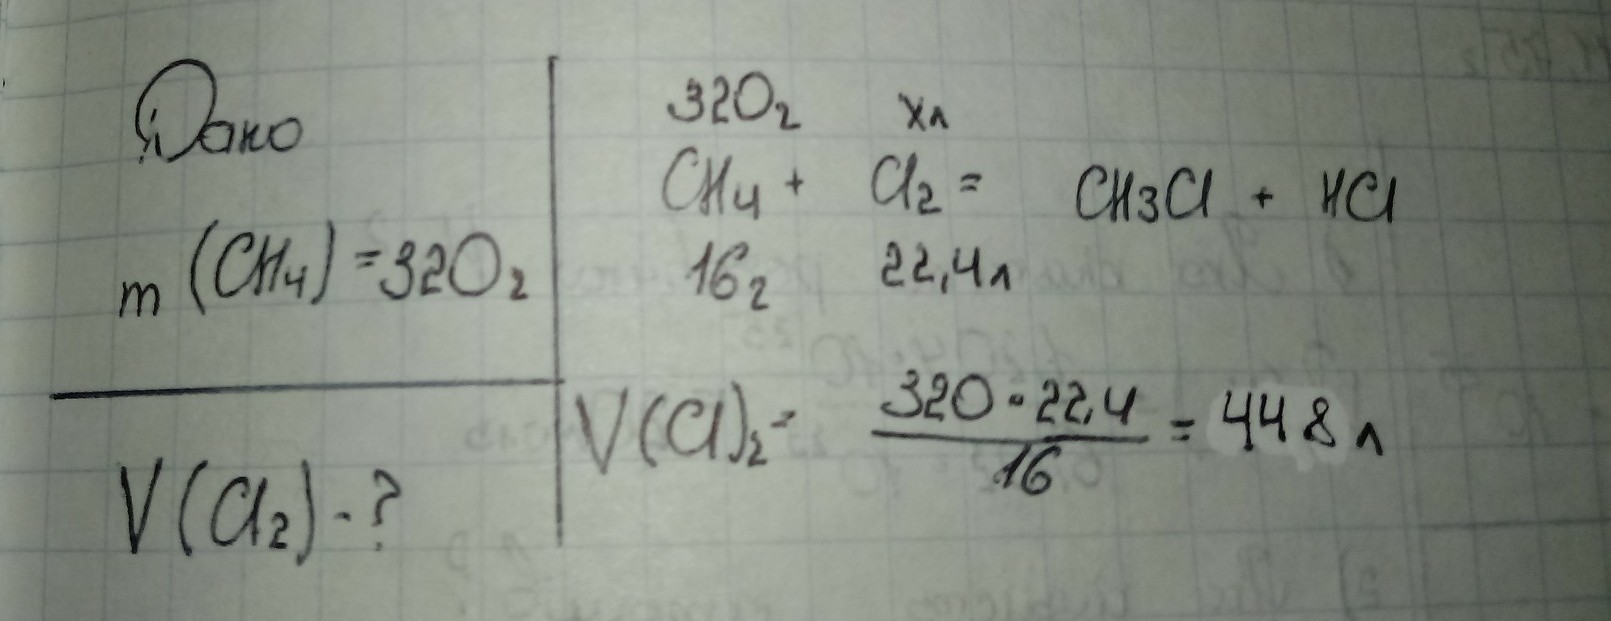 Дано
m (CH4) = 320г
V (Cl2) - ?
320г хл
CH4 + Cl2 = CH3Cl + HCl
16г 22,4л
V(Cl)2 = 320 · 22,4 / 16 = 448л